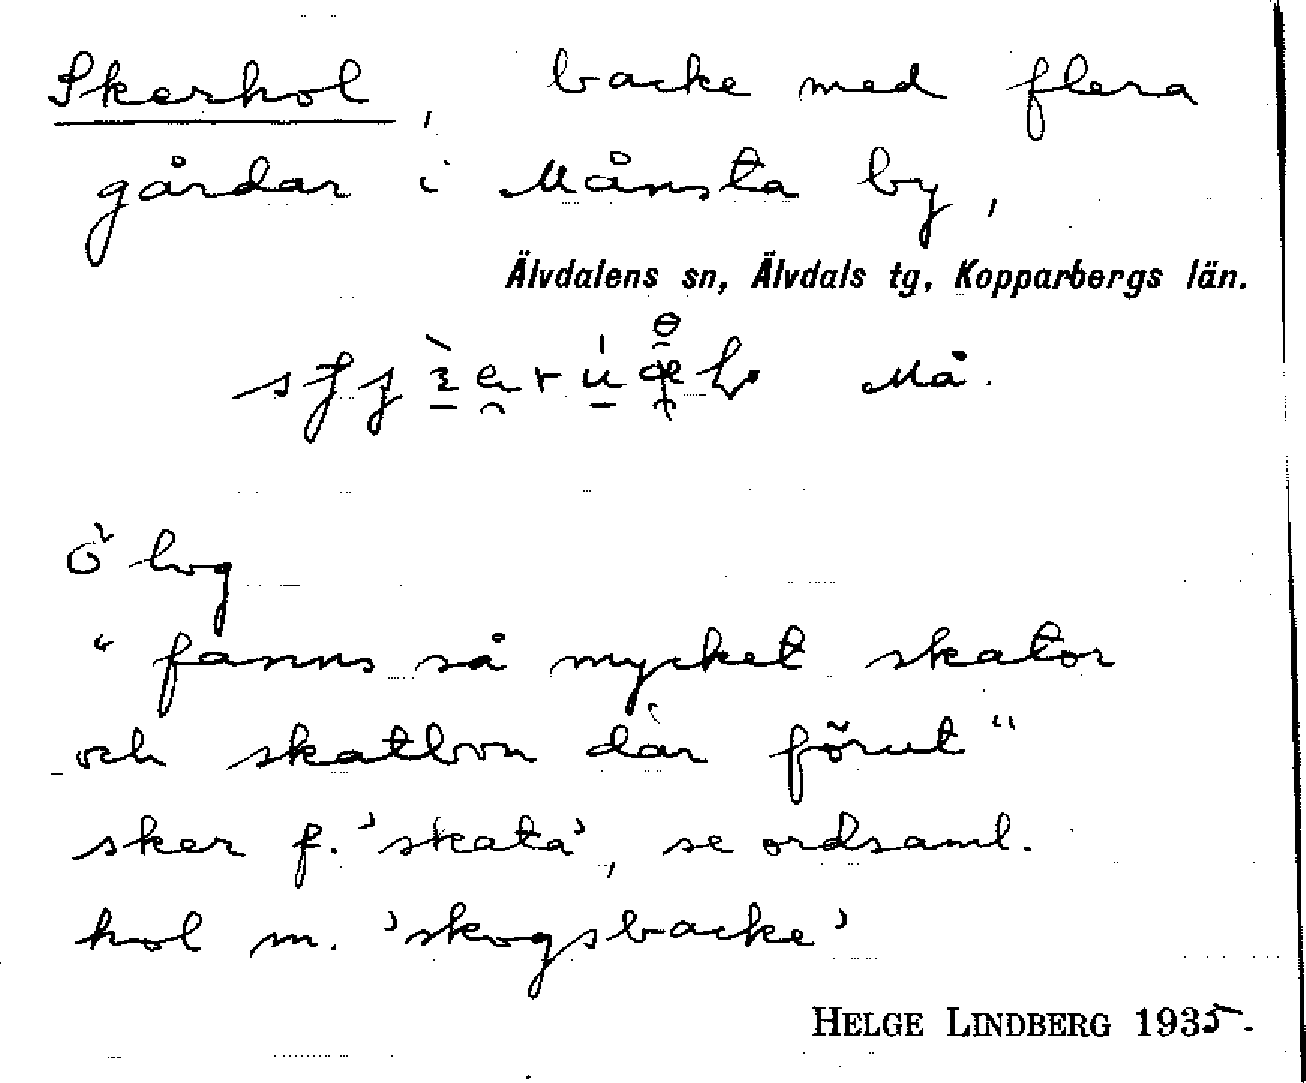 Skerhol, backe med flera
gårdar i Månsta by,
Älvdalens sn, Älvdals tg, Kopparbergs län.
Må.
Ö hog
"fanns så mycket skator
och skatbon där förut"
sker f. 'skata', se ordsaml.
hol m. 'skogsbacke'
HELGE LINDBERG 1935.